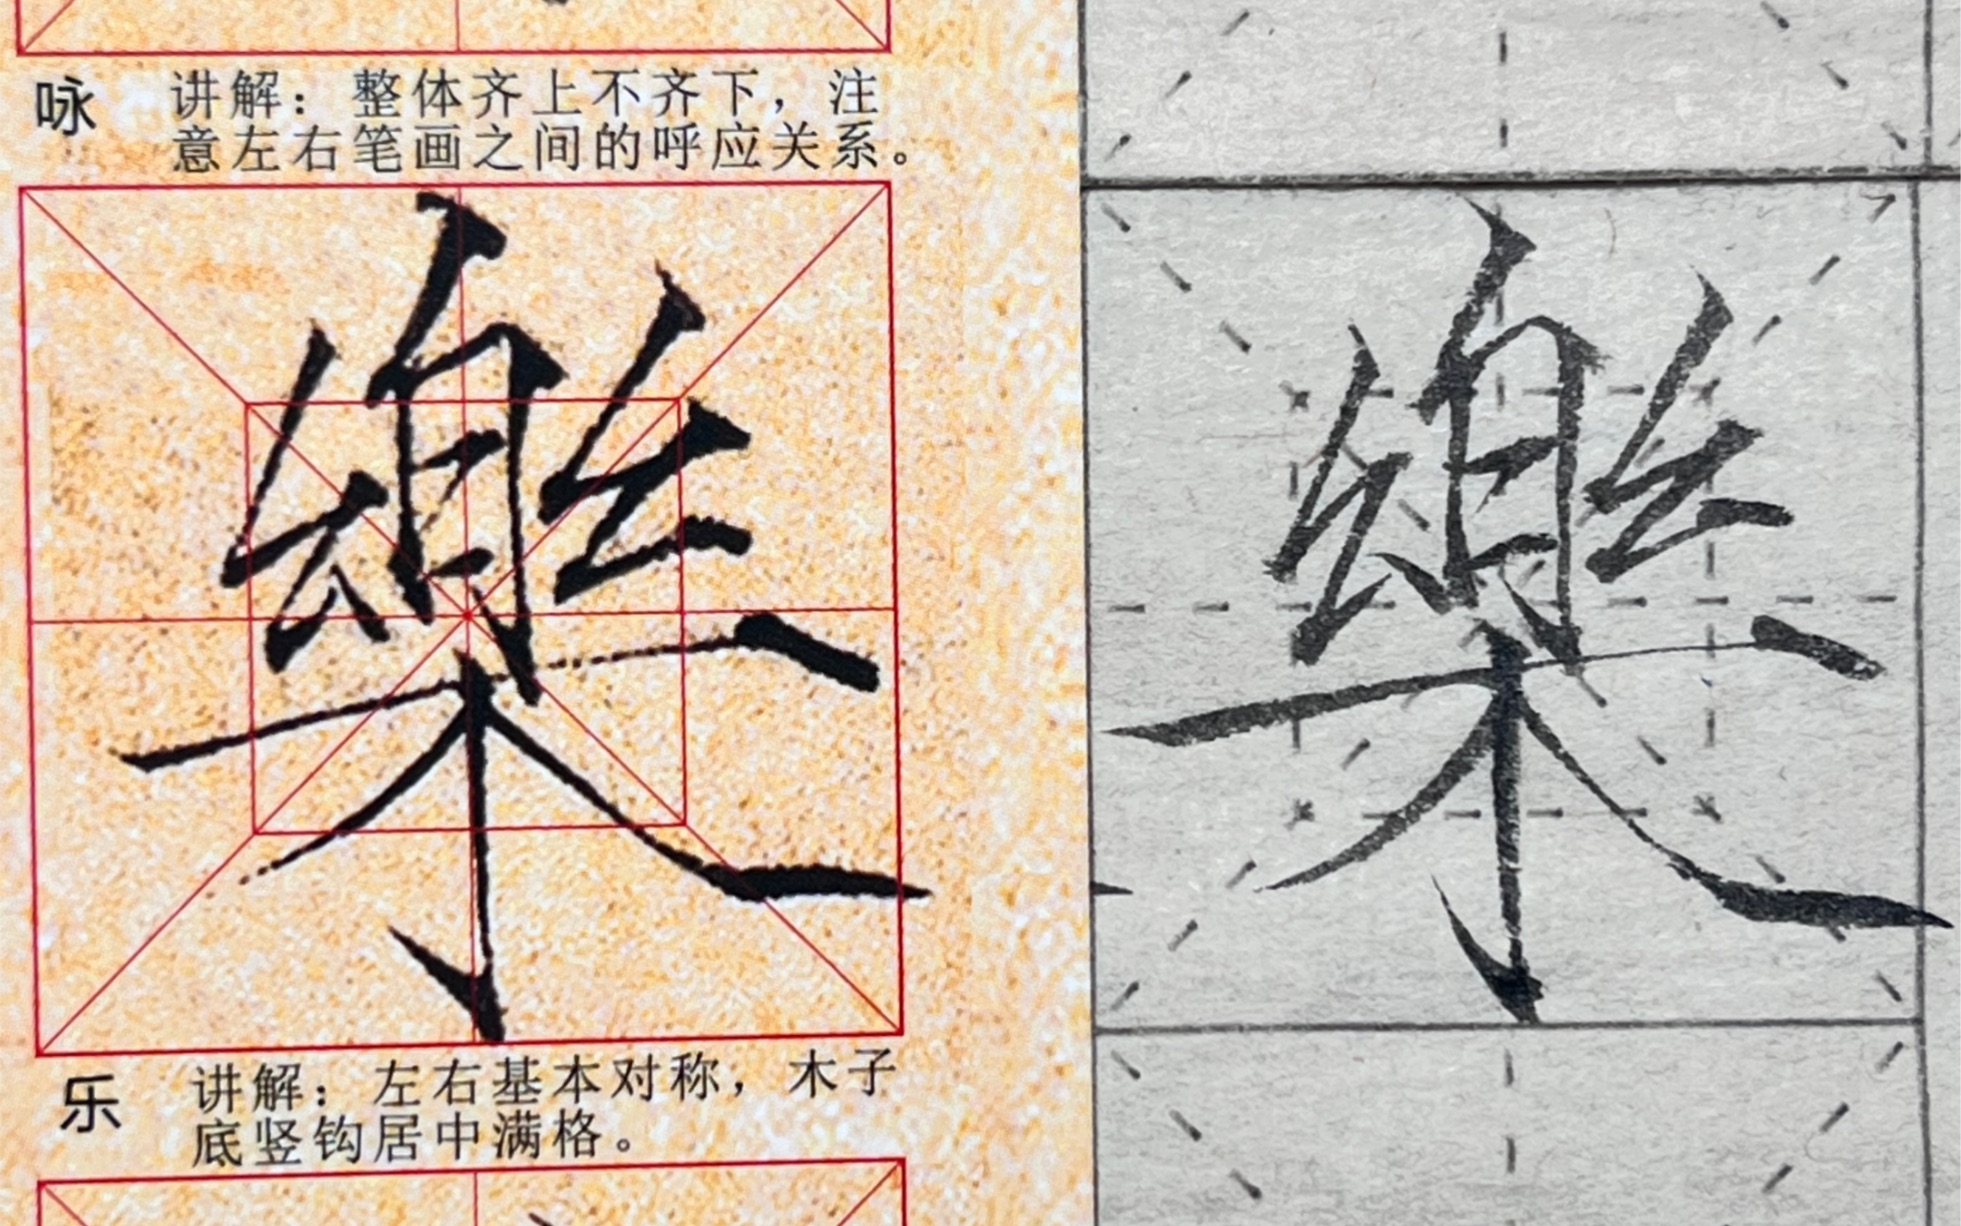 咏 讲解：整体齐上不齐下，注
意左右笔画之间的呼应关系。
樂
樂
乐 讲解：左右基本对称，木子
底竖钩居中满格。